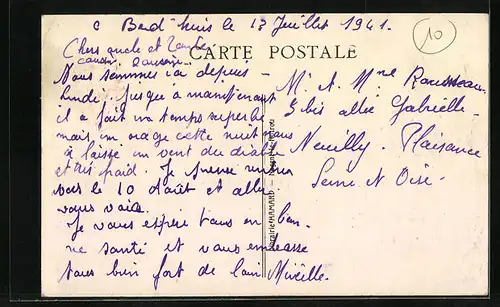 Bed' huis le 13 Juillet 1941.
10
CARTE POSTALE
Chers oncle et Tante
cousin, cousine
Nous sommes ici depuis
lundi. Jusqu'à maintenant
il a fait un temps superbe
mais un orage cette nuit nous
a laissé un vent du diable
et très froid. Je pense
vers le 10 Août et aller
vous voir.
Je vous espère tous en bon-
ne santé et vous embrasse
tous bien fort de loin Mireille.
Mr et Mme Rousseau
5 bis allée Gabrielle
Neuilly. Plaisance
Seine et Oise.
Librairie HAMARD